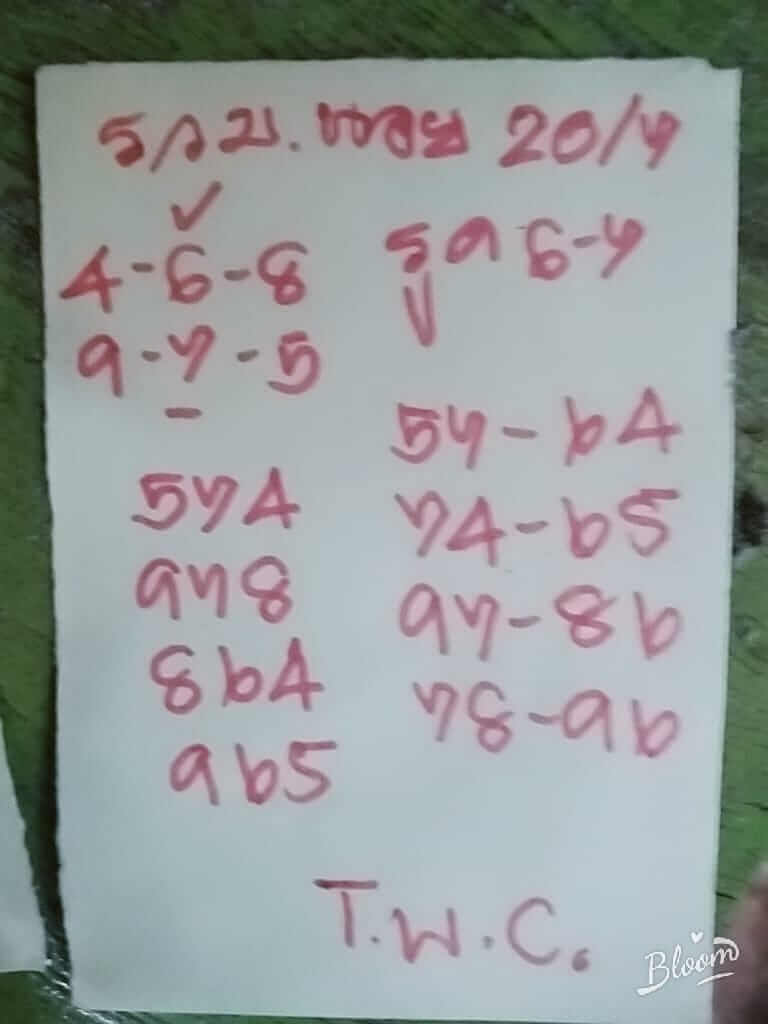 รวม. หวย 20/7
4-6-8
9-7-5
รูด 6-7
574
978
864
965
57-64
74-65
97-86
78-96
T.W.C.
Bloom